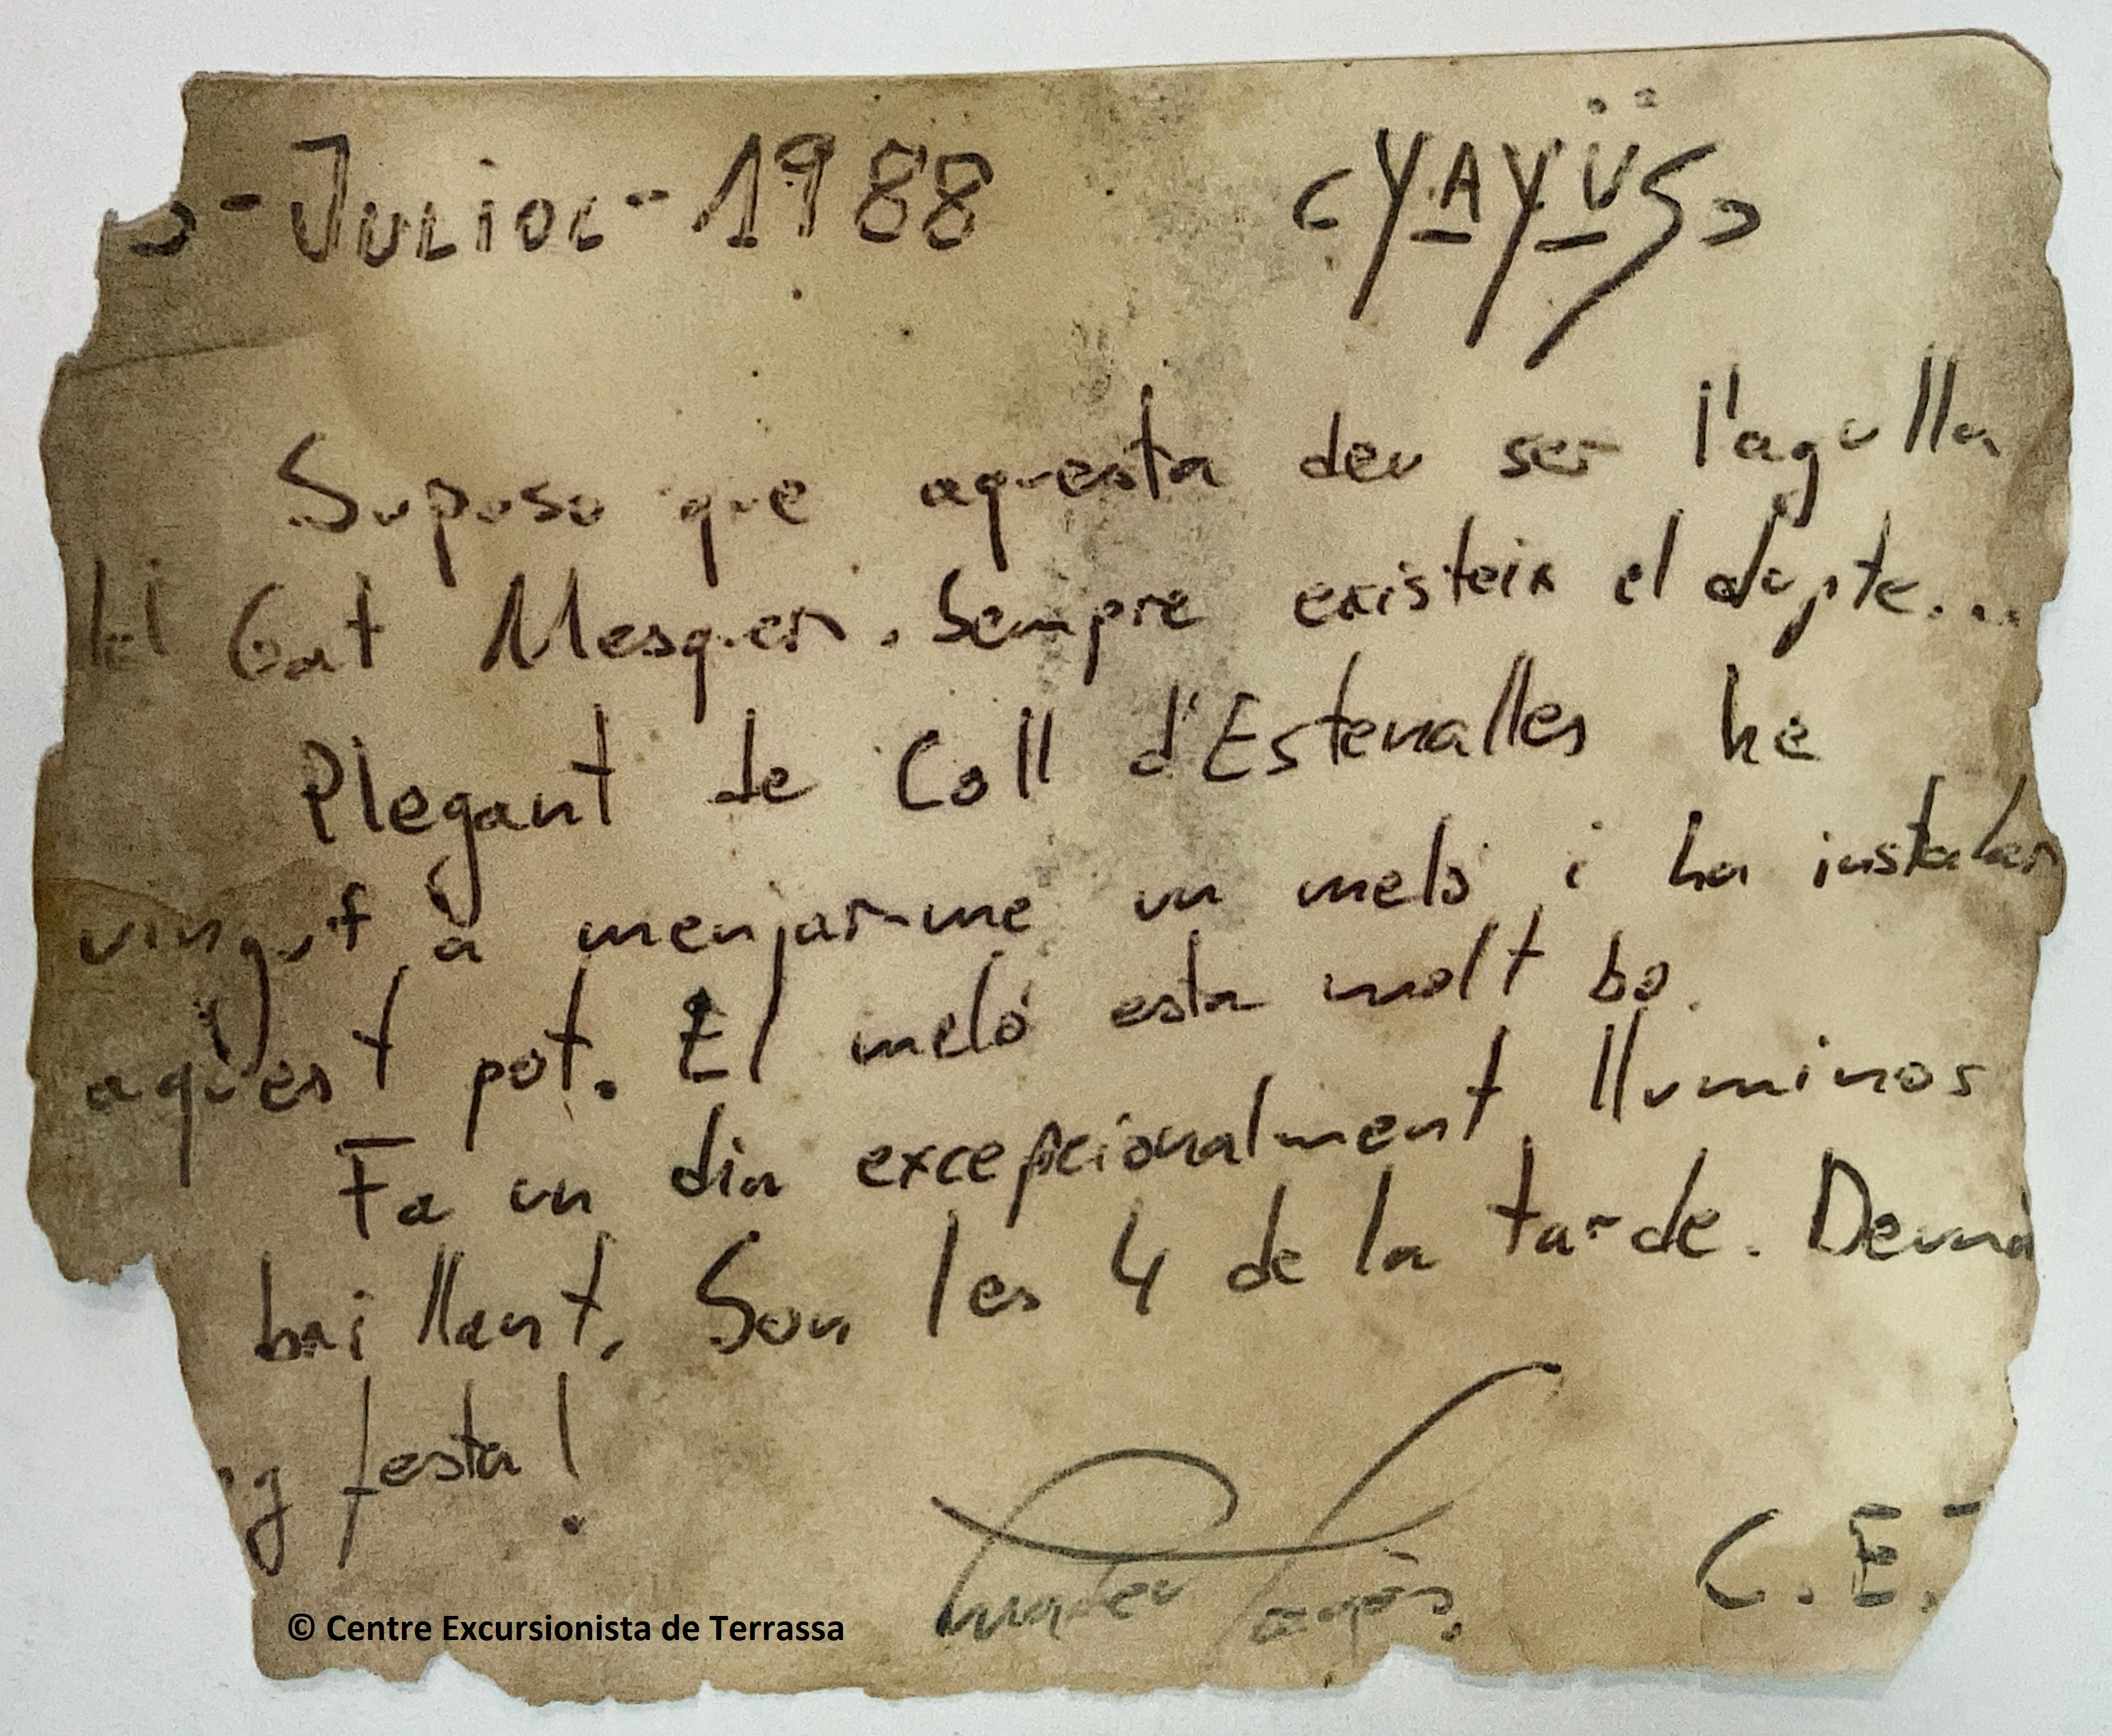 -Julioc-1988 <YAYÜS>
Suposo que aquesta deu ser l'agulla
del Gat Mesquer. Sempre existeix el dupte...
Plegant de Coll d'Estenalles he
vingut à menjar-me un meló i ha instalar
aquest pot. El meló esta molt bo.
Fa un dia excepcionalment lluminos
brillant. Son les 4 de la tarde. Demà
festa!
C.E.
© Centre Excursionista de Terrassa